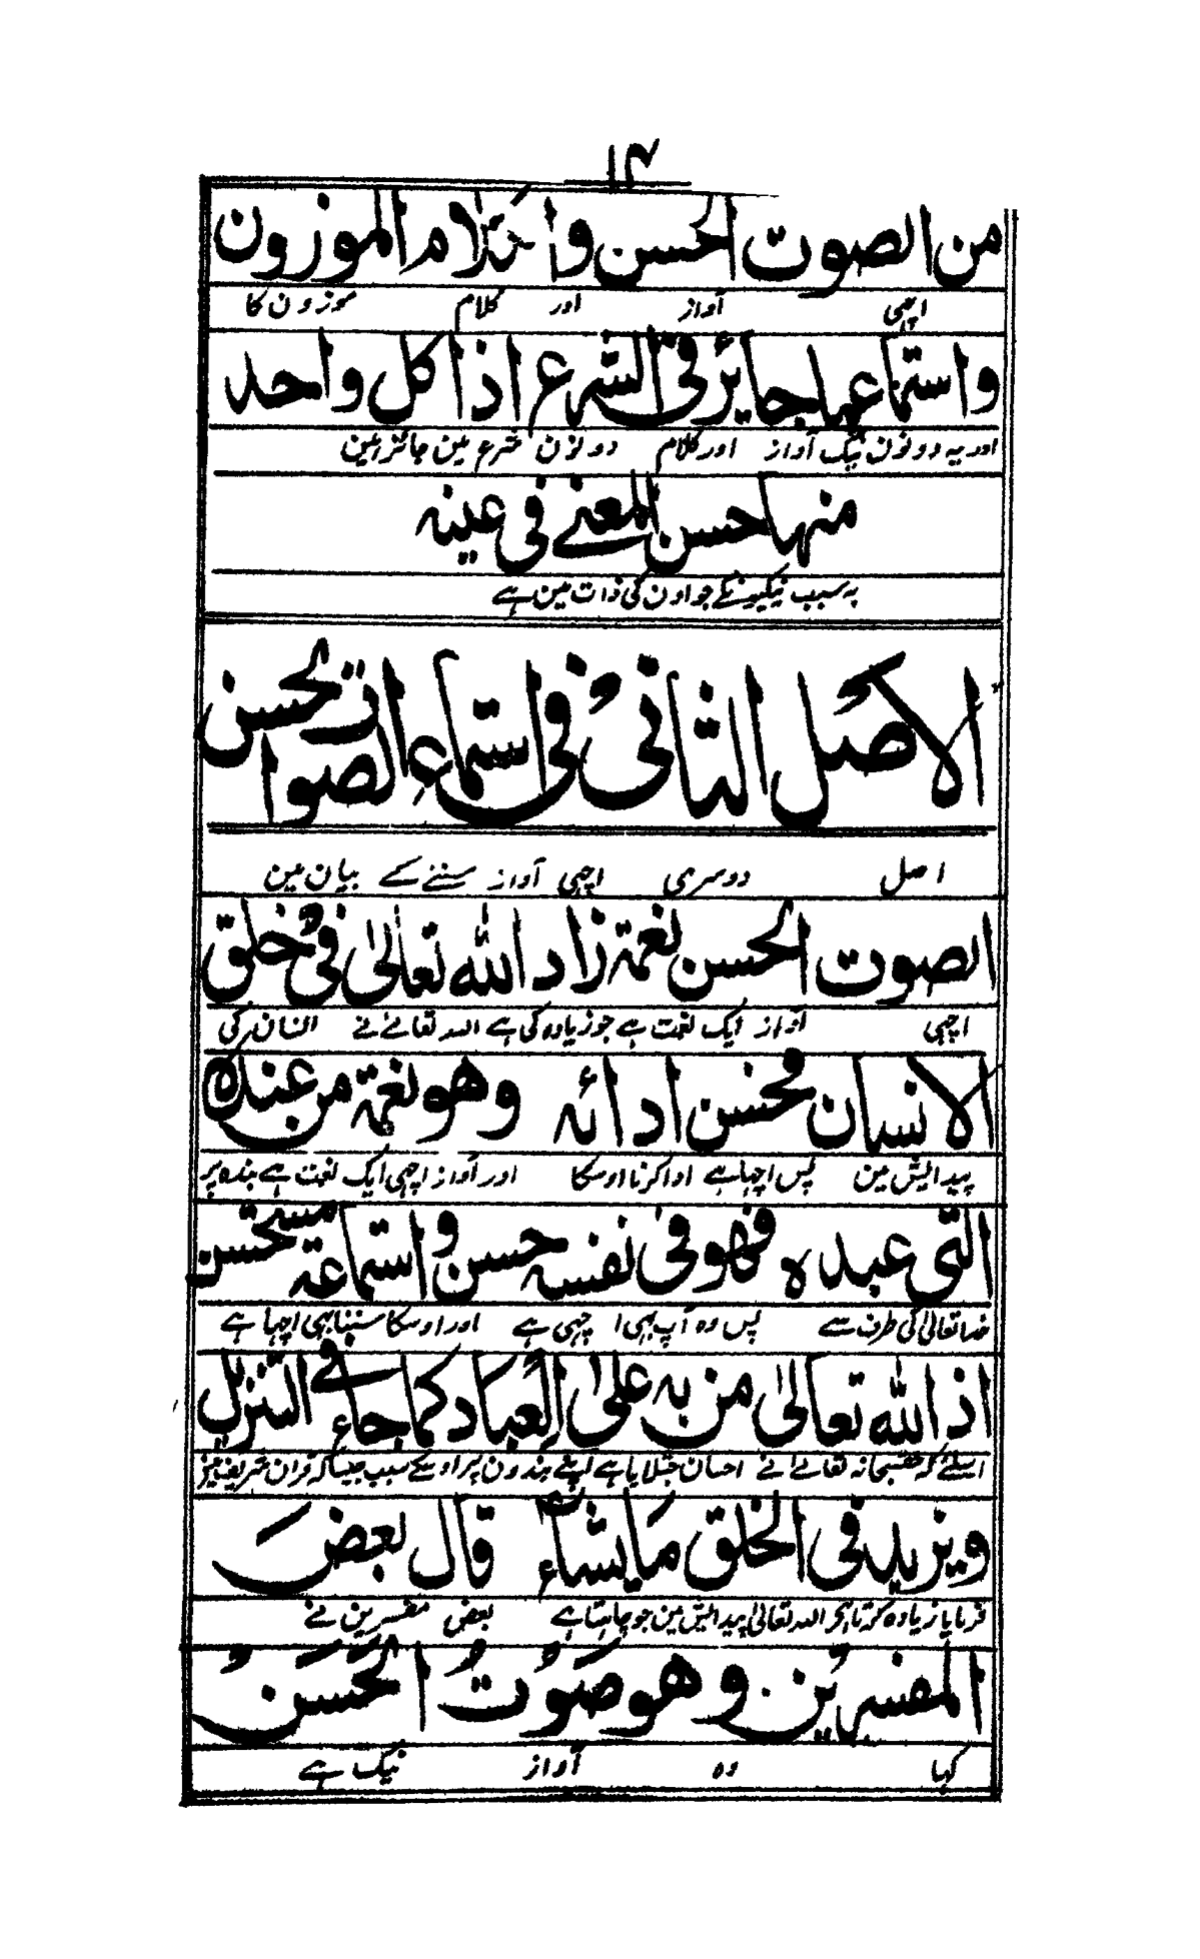 ۱۴
من الصوت الحسن والکلام الموزون
اچھی آواز اور کلام موزون کا
واستماعها جایز فی الشرع اذا کل واحد
اور یہ دونون نیک آواز اور کلام دونون شرع مین جائز ہین
منها حسن المعنے فی عینه
بہ سبب نیکیونکے جو اون کی ذات مین ہے
الاصل الثانی فی استماع الصوات الحسن
اصل دوسری اچھی آواز سننے کے بیان مین
الصوت الحسن نعمة زاد الله تعالیٰ فی خلق
اچھی آواز ایک نعمت ہے جو زیادہ کی ہے اللہ تعالےٰ نے انسان کی
الانسان فحسن ادائه وهو نعمة من عنده
پیدایش مین پس اچھا ہے ادا کرنا اوسکا اور آواز اچھی ایک نعمت ہے بندہ پر
التی عبده فهو فی نفسه حسن و استماعة مستحسن
خداتعالیٰ کی طرف سے پس وہ آپ بھی اچھی ہے اور اوسکا سننا بھی اچھا ہے
اذ الله تعالیٰ من به علی العباد کما جاء فے التنزیل
اسلئے کہ حقسبحانہ تعالےٰ نے احسان جتلایا ہے اپنے بندون پر اوسکے سبب جیسا کہ قران شریف مین
ویزید فی الخلق ما یشاء قال بعض
فرمایا زیادہ کرتا ہے اللہ تعالیٰ پیدایش مین جو چاہتا ہے بعض مفسرین نے
المفسرین وهو صوت الحسن
کہا وہ آواز نیک ہے